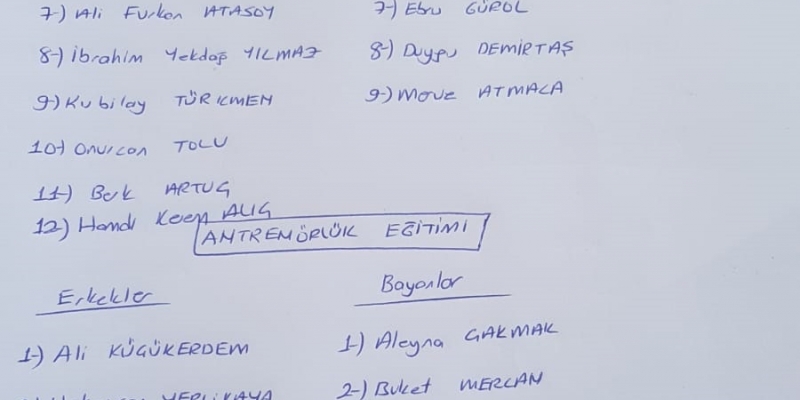 7-) Ali Furkan ATASOY
8-) İbrahim Yekdaş YILMAZ
9-) Kubilay TÜRKMEN
10-) Onurcan TOLU
11-) Berk ARTUĞ
12) Hamdi Kerem ALIÇ
7-) Ebru GÜROL
8-) Duygu DEMİRTAŞ
9-) Merve ATMACA
ANTREMÖRLÜK EĞİTİMİ
Erkekler
1-) Ali KÜÇÜKERDEM
YERLİKAYA
Bayanlar
1-) Aleyna ÇAKMAK
2-) Buket MERCAN